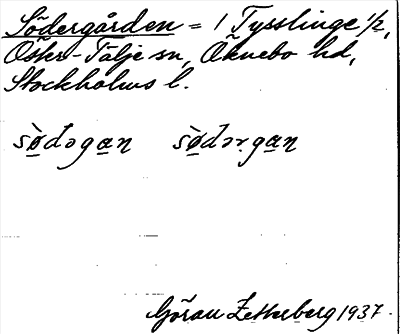 Södergården = 1 Tysslinge 1/2,
Öster-Tälje sn, Öknebo hd,
Stockholms l.
sø̀dəgan sø̀dərgan
Göran Zetterberg 1937.